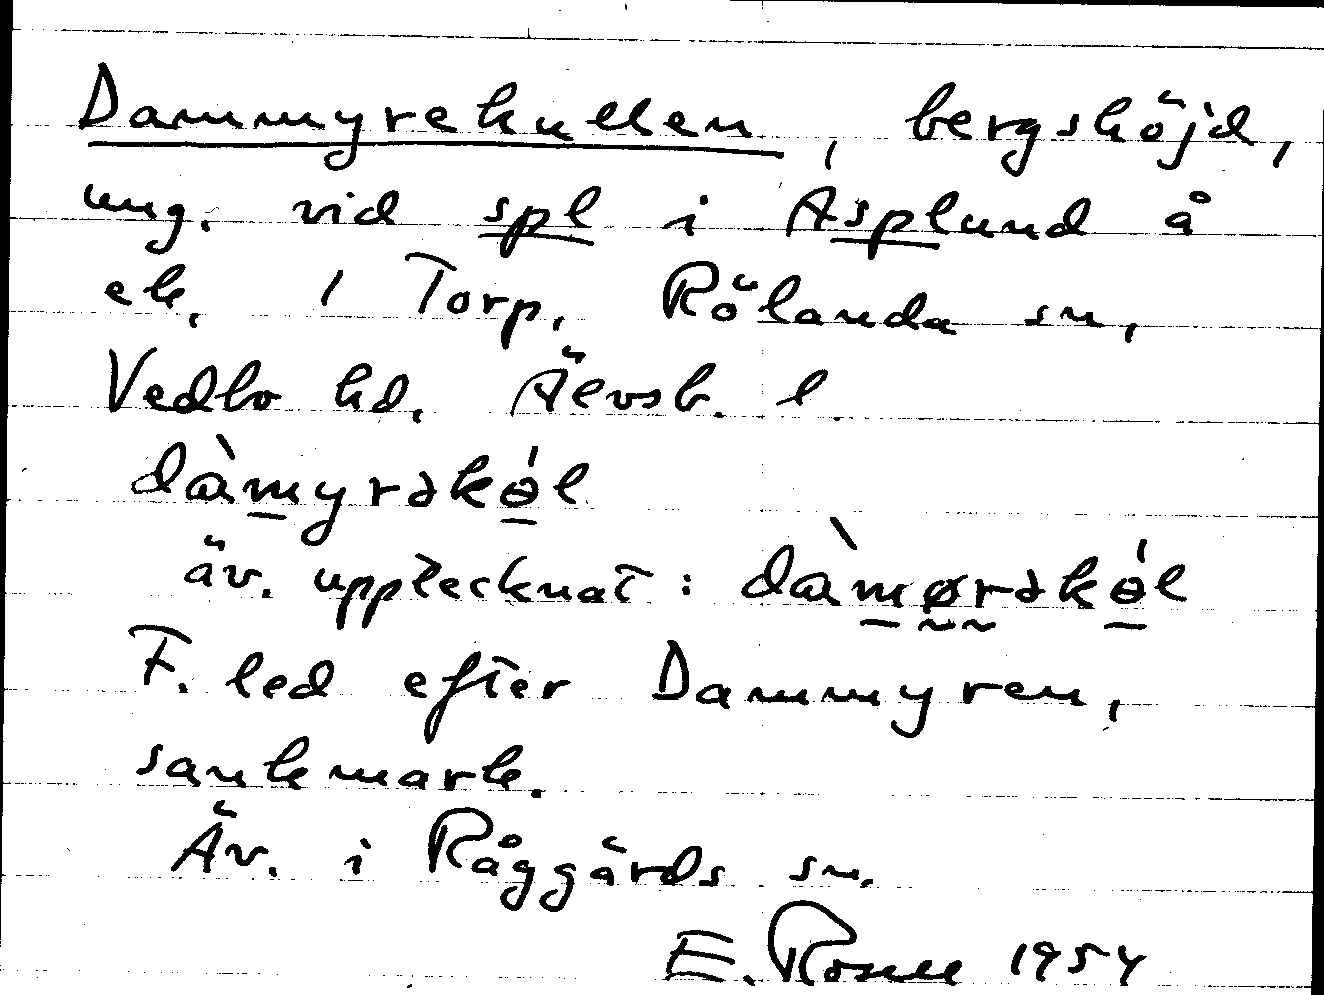 Dammyrekullen, bergshöjd,
ung. vid spl i Asplund å
ek. 1 Torp, Rölanda sn,
Vedbo hd. Älvsb. l
dàmyrəkɵ́l
äv. upptecknat: dàmørəkɵ́l
F. led efter Dammyren,
sankmark.
Äv. i Råggärds sn.
E. Rosell 1954